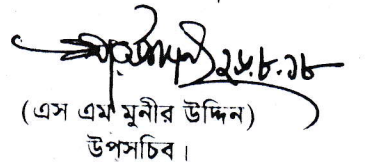 ২৮.৮.১৮
(এস এম মুনীর উদ্দিন)
উপসচিব।